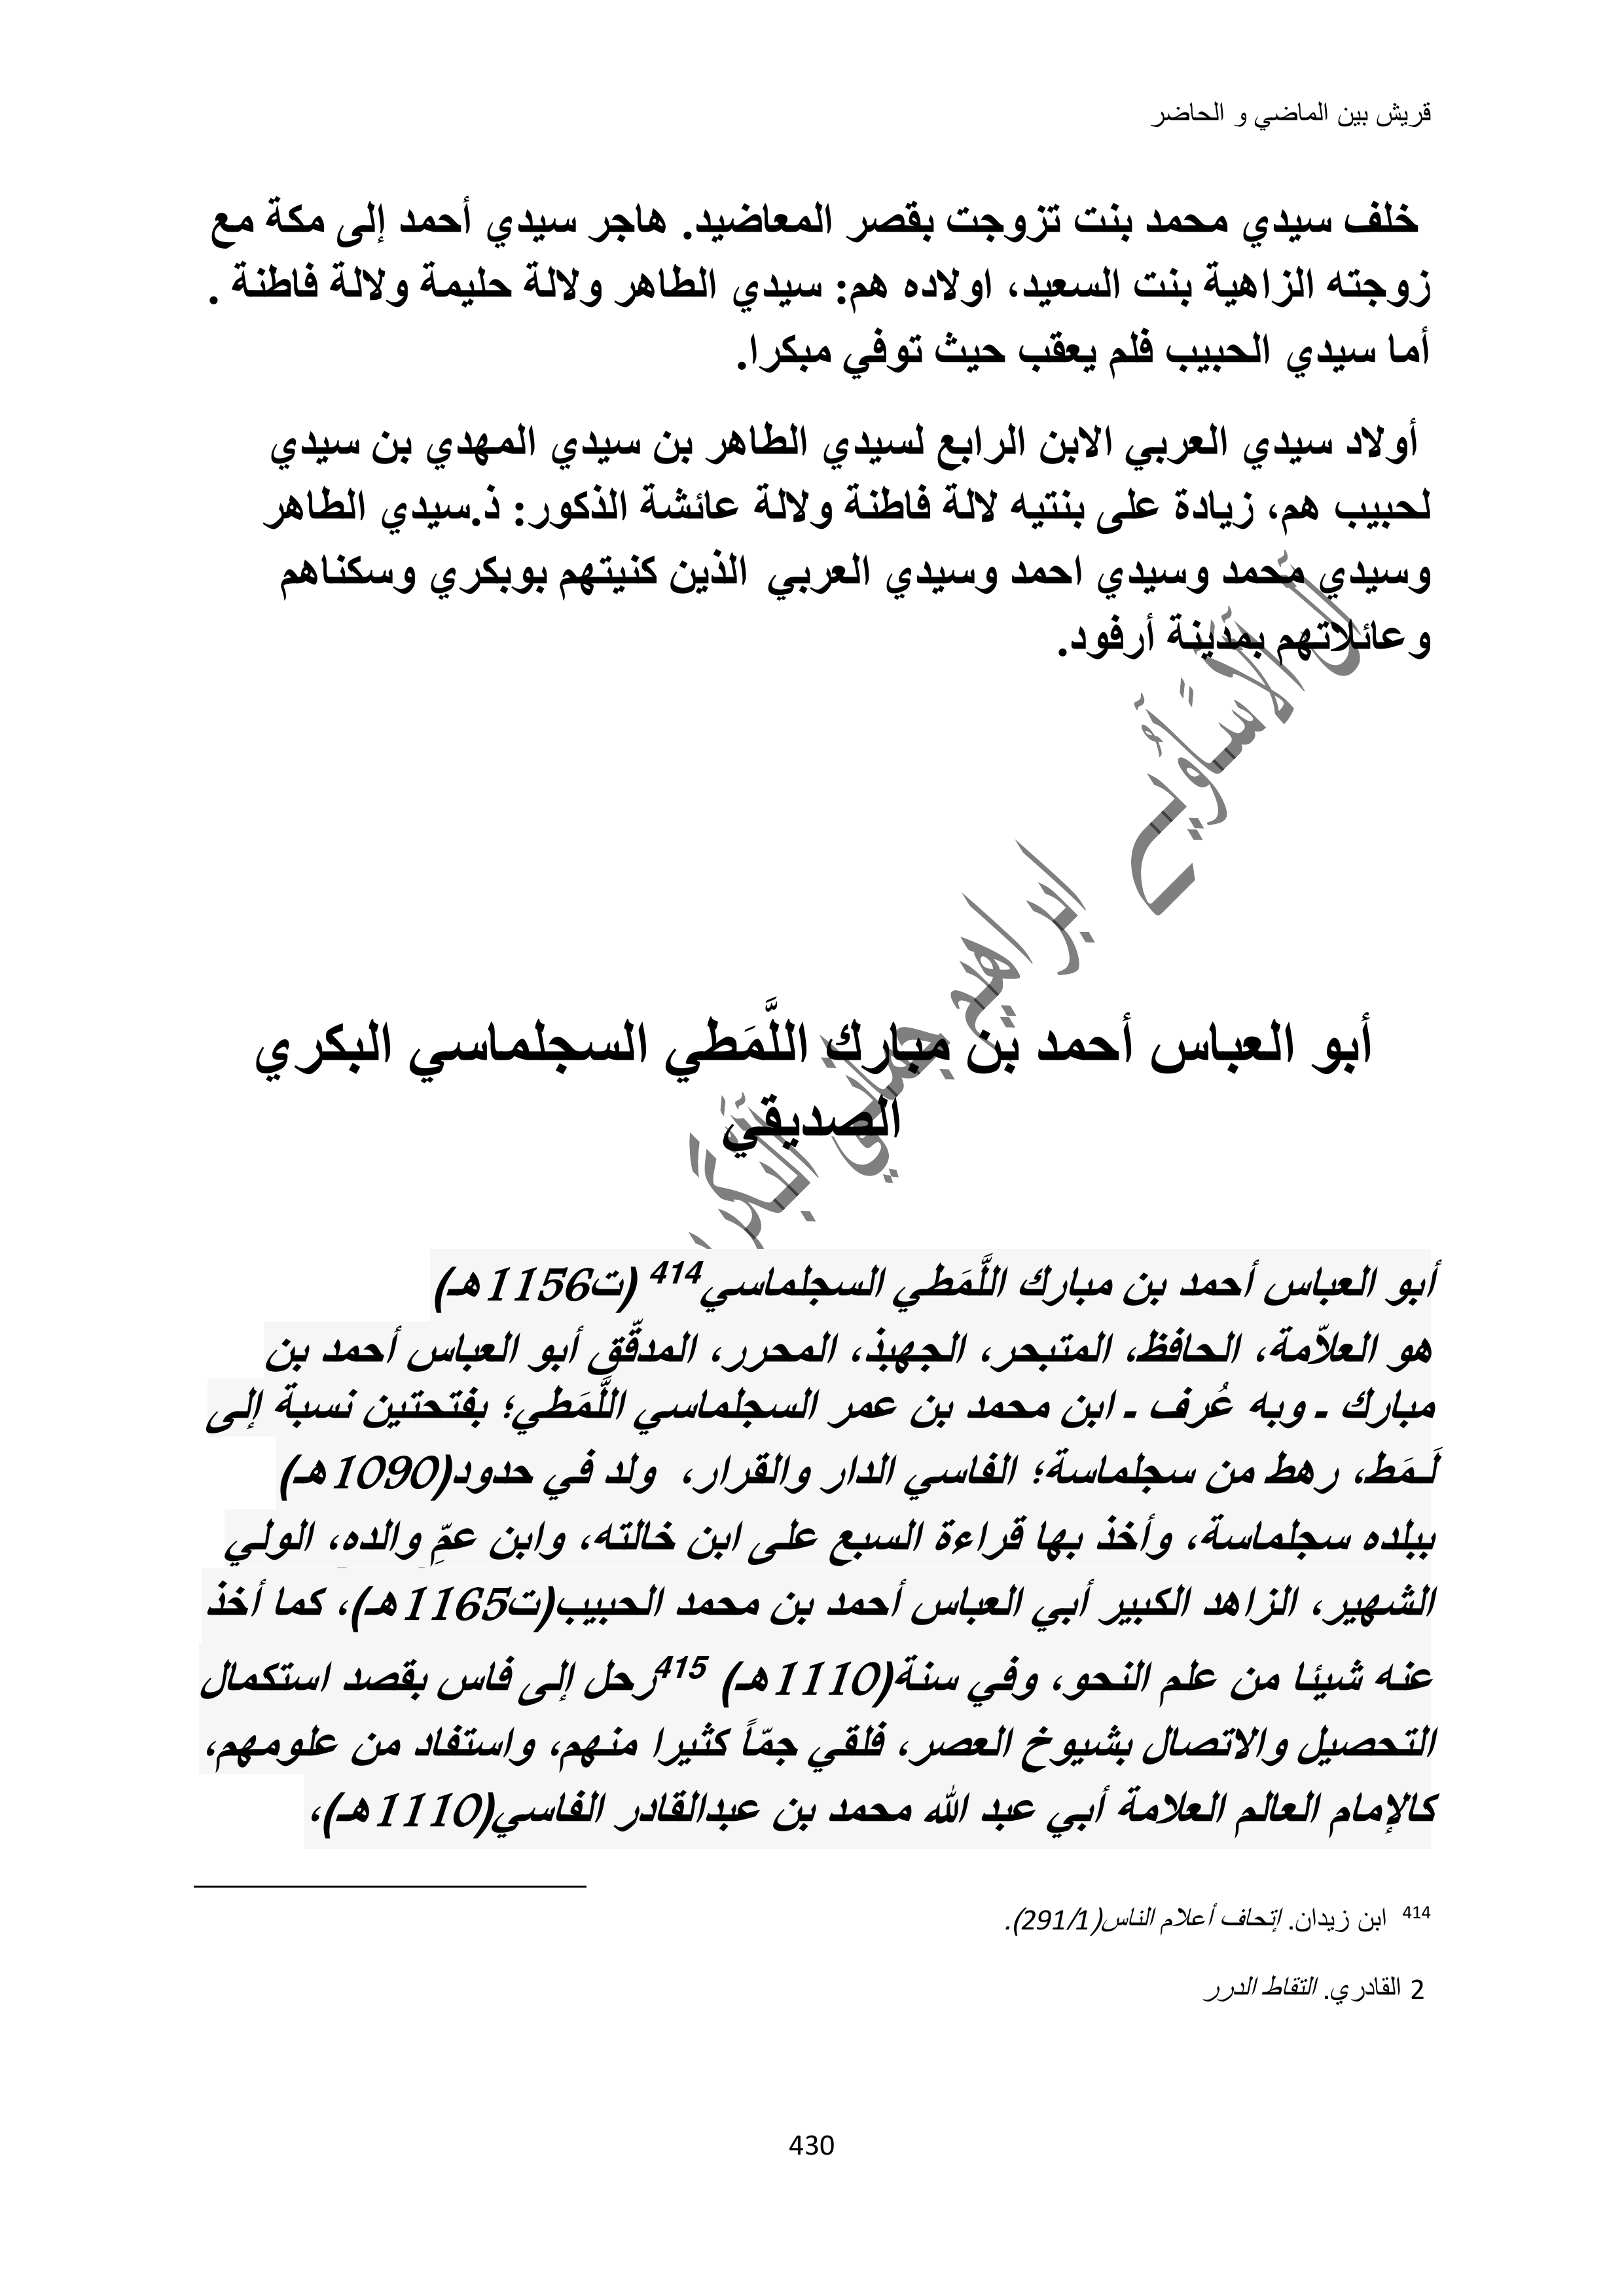 قريش بين الماضي و الحاضر
خلف سيدي محمد بنت تزوجت بقصر المعاضيد. هاجر سيدي أحمد إلى مكة مع
زوجته الزاهية بنت السعيد، اولاده هم: سيدي الطاهر ولالة حليمة ولالة فاطنة .
أما سيدي الحبيب فلم يعقب حيث توفي مبكرا.
أولاد سيدي العربي الابن الرابع لسيدي الطاهر بن سيدي المهدي بن سيدي
لحبيب هم، زيادة على بنتيه لالة فاطنة ولالة عائشة الذكور: ذ.سيدي الطاهر
وسيدي محمد وسيدي احمد وسيدي العربي الذين كنيتهم بوبكري وسكناهم
وعائلاتهم بمدينة أرفود.
أبو العباس أحمد بن مبارك اللَّمَطي السجلماسي البكري
الصديقي
أبو العباس أحمد بن مبارك اللَّمَطي السجلماسي414 (ت1156هـ)
هو العلاّمة، الحافظ، المتبحر، الجهبذ، المحرر، المدقّق أبو العباس أحمد بن
مبارك ـ وبه عُرف ـ ابن محمد بن عمر السجلماسي اللَّمَطي؛ بفتحتين نسبة إلى
لَـمَط، رهط من سجلماسة؛ الفاسي الدار والقرار، ولد في حدود(1090هـ)
ببلده سجلماسة، وأخذ بها قراءة السبع على ابن خالته، وابن عمِّ والده، الولي
الشهير، الزاهد الكبير أبي العباس أحمد بن محمد الحبيب(ت1165هـ)، كما أخذ
عنه شيئا من علم النحو، وفي سنة(1110هـ) 415رحل إلى فاس بقصد استكمال
التحصيل والاتصال بشيوخ العصر، فلقي جمّاً كثيرا منهم، واستفاد من علومهم،
كالإمام العالم العلامة أبي عبد الله محمد بن عبدالقادر الفاسي(1110هـ)،
414 ابن زيدان. إتحاف أعلام الناس(291/1).
2 القادري. التقاط الدرر
430